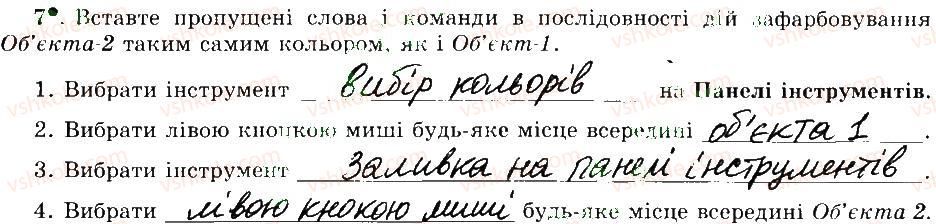 7•. Вставте пропущені слова і команди в послідовності дій зафарбовування
Об'єкта-2 таким самим кольором, як і Об'єкт-1.
1. Вибрати інструмент вибір кольорів на Панелі інструментів.
2. Вибрати лівою кнопкою миші будь-яке місце всередині об'єкта 1.
3. Вибрати інструмент Заливка на панелі інструментів.
4. Вибрати лівою кнокою миші будь-яке місце всередині Об'єкта 2.